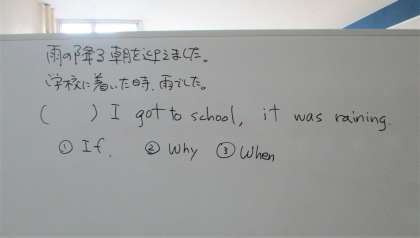 雨の降る朝を迎えました。
学校に着いた時、雨でした。
(   ) I got to school, it was raining.
① If. ② Why ③ When